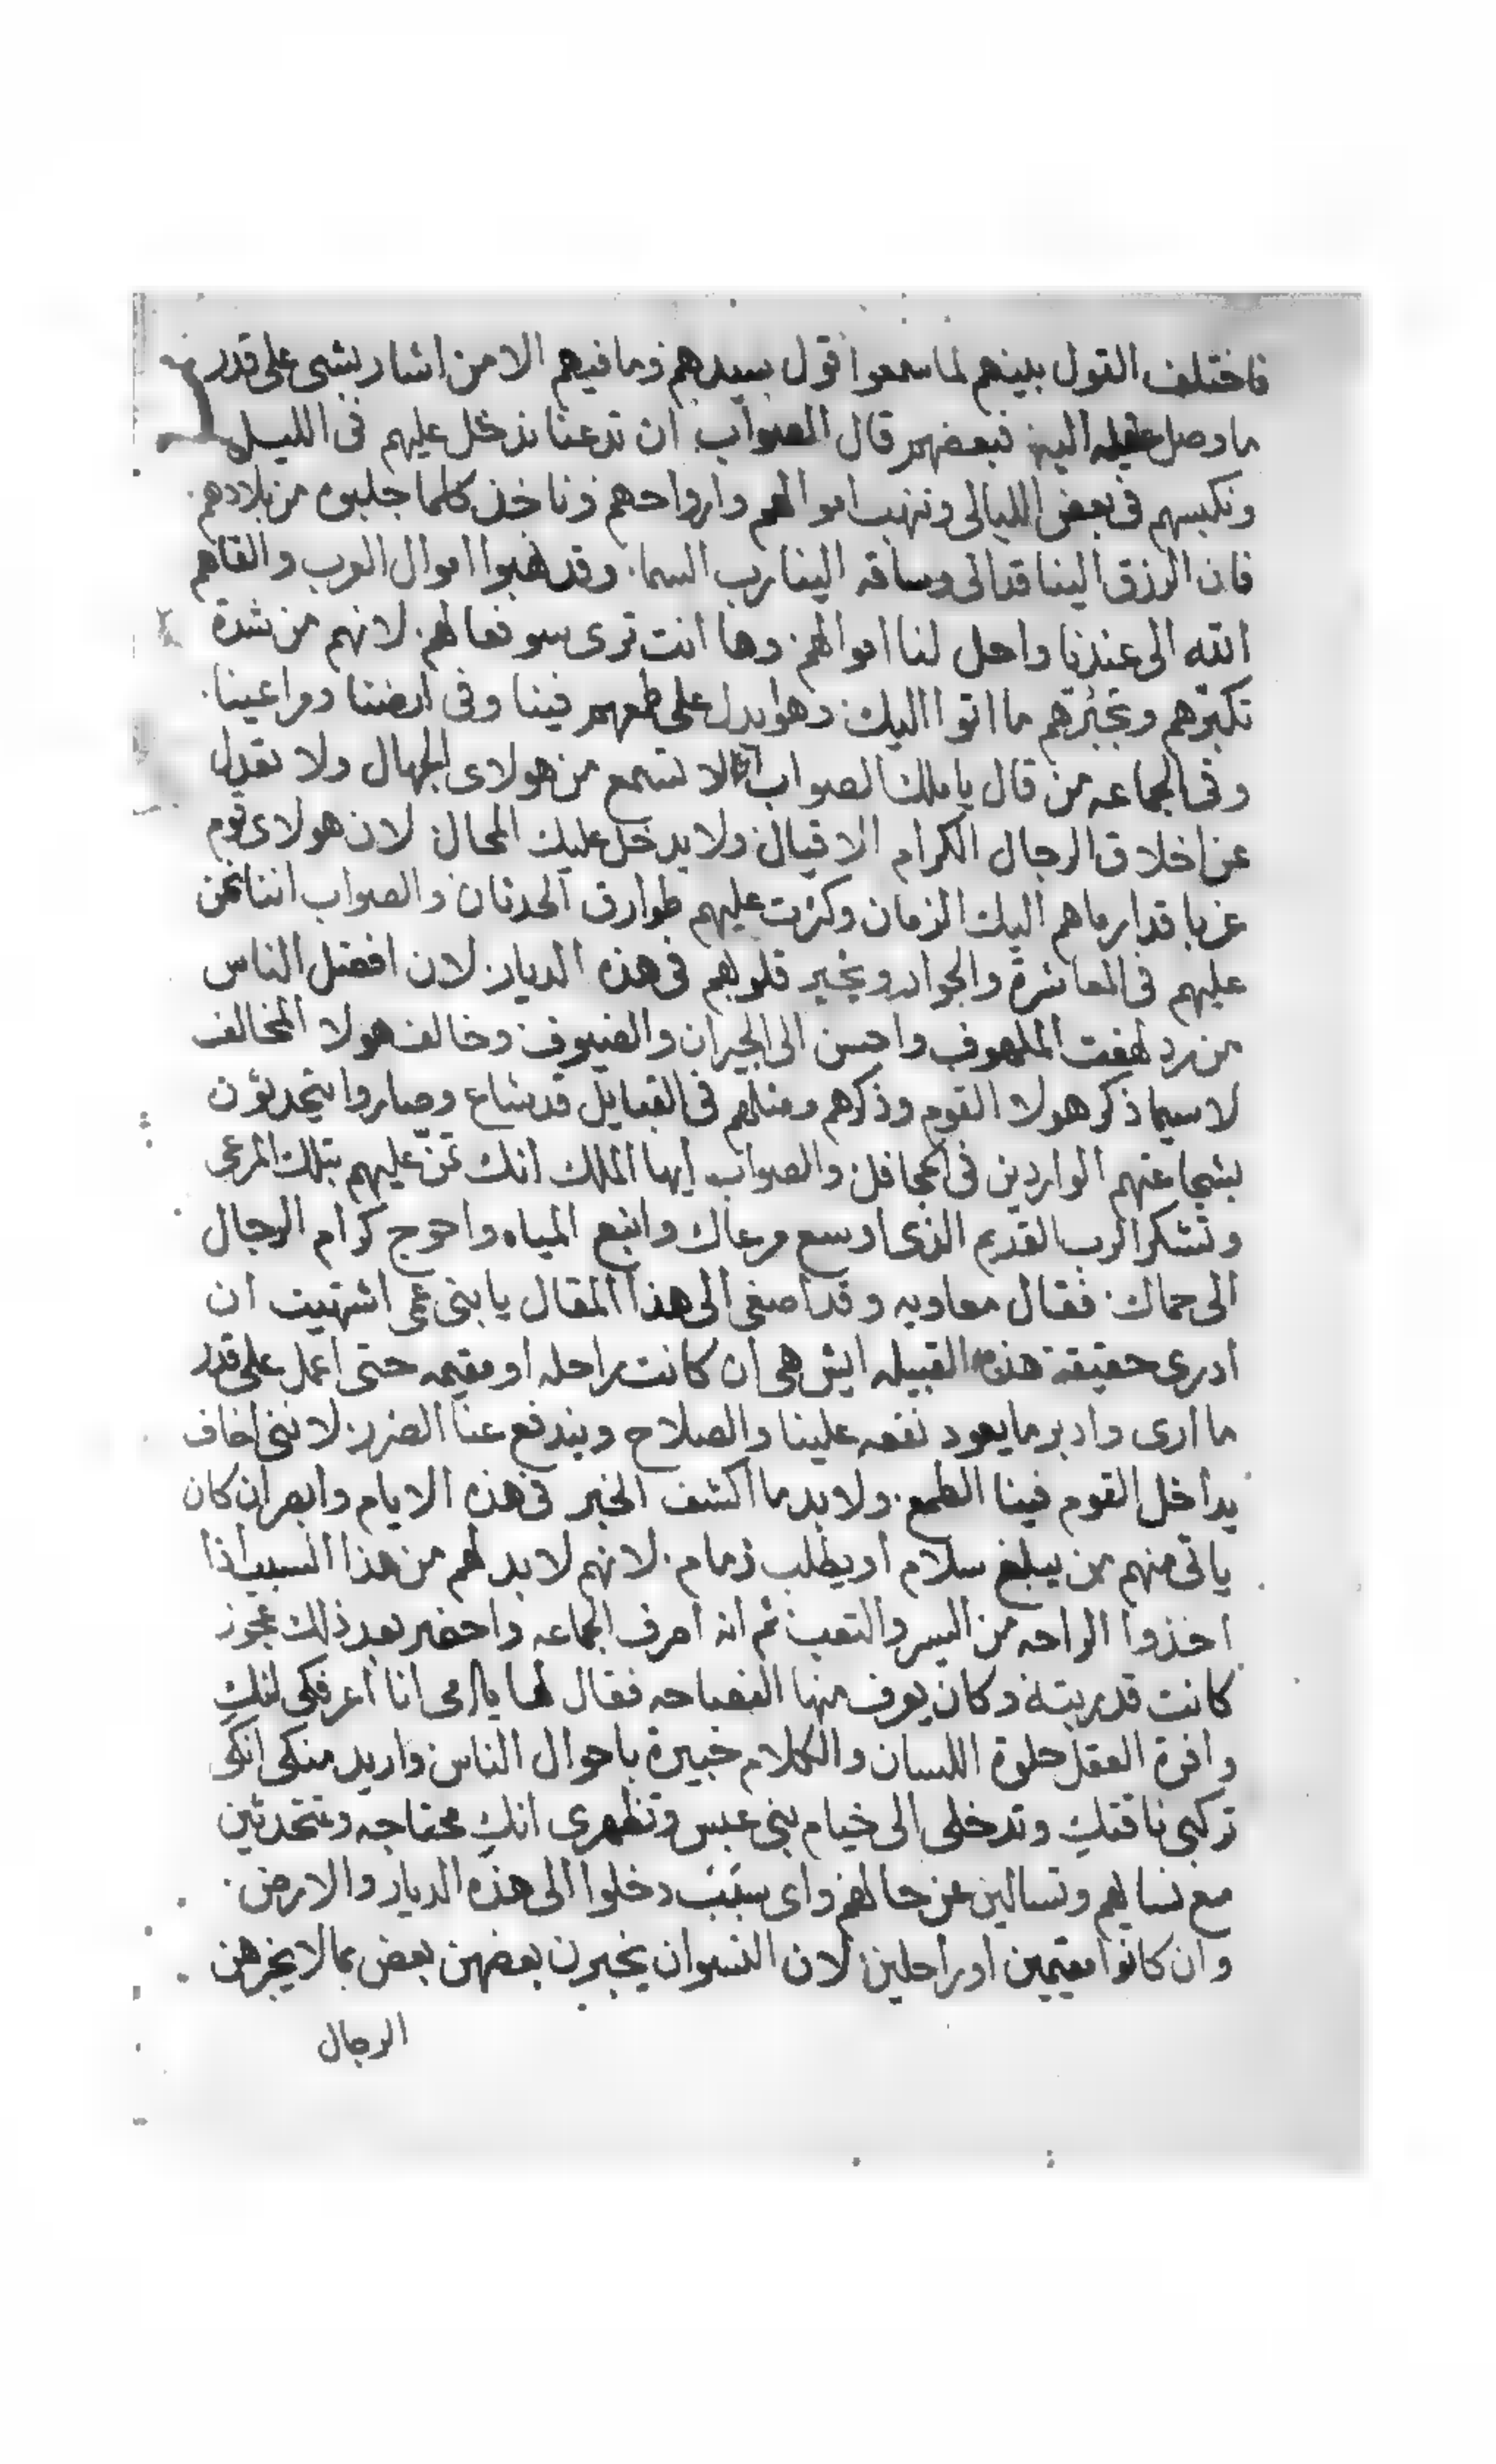 فاختلف القول بينهم لما سمعوا قول سيدهم وما فيهم الا من اشار بشى على قدر
ما وصل عقله اليه فبعضهم قال الصواب ان تدعنا ندخل عليهم فى الليل
ونكبسهم فى بعض الليالى وننهب اموالهم وارواحهم وناخذ كلما جلبوه من بلادهم
فان الرزق الينا قد اتى وساقه الينا رب السما وقد نهبوا اموال العرب والقاهم
الله الى عندنا واحل لنا اموالهم وها انت ترى سو فعالهم لانهم من شدة
تكبرهم وتجبرهم ما اتوا اليك وهوا يدل على طمعهم فينا وفى ارضنا ومراعينا
وفى الجماعه من قال يا ملك الصواب لا تسمع من هولاى الجهال ولا تعدل
عن اخلاق الرجال الكرام الاقيال ولا يدخل عليك المحال لان هولاى قوم
غربا قد ارماهم اليك الزمان وكثرت عليهم طوارق الحدثان والصواب اننا نمن
عليهم فى المعاشرة والجوار ونجبر قلوبهم فى هذه الديار لان افضل الناس
من رد لهفت الملهوف واحسن الى الجيران والضيوف وخالف هولا المخالف
لاسيما ذكر هولا القوم وذكرهم ومثلهم فى القبايل قد شاع وصاروا يتحدثون
بشجاعتهم الواردين فى المحافل والصواب ايها الملك انك تمنّ عليهم بتلك المرعى
وتشكر الرب القديم الذى اوسع مرعاك وانبع المياه واحوج كرام الرجال
الى حماك فقال معاويه وقد اصغى الى هذا المقال يا بنى عمى اشتهيت ان
ادرى حقيقة هذه القبيله ايش هى ان كانت راحله او مقيمه حتى اعمل على قدر
ما ارى وادبر ما يعود نفعه علينا والصلاح ويندفع عنا الضرر لاننى اخاف
يداخل القوم فينا الطمع ولا بد ما اكشف الخبر فى هذه الايام وابصر ان كان
ياتى منهم من يبلغ سلام او يطلب زمام لانهم لا بد لهم من هذا السبب اذا
اخذوا الراحه من السير والتعب ثم انه اصرف الجماعه واحضر بعد ذلك عجوز
كانت قد ربته وكان يعرف منها الفصاحه فقال لها يا امى انا اعرفكى انك
وافرة العقل حلوة اللسان والكلام خبيرة باحوال الناس واريد منكى انكى
تركبى ناقتك وتدخلى الى خيام بنى عبس وتظهرى انك محتاجه وتتحدثين
مع نسايهم وتسالين عن حالهم واى سبب دخلوا الى هذه الديار والارض
وان كانوا مقيمين او راحلين لان النسوان يخبرن بعضهن بعض بما لا يخبرهن
الرجال